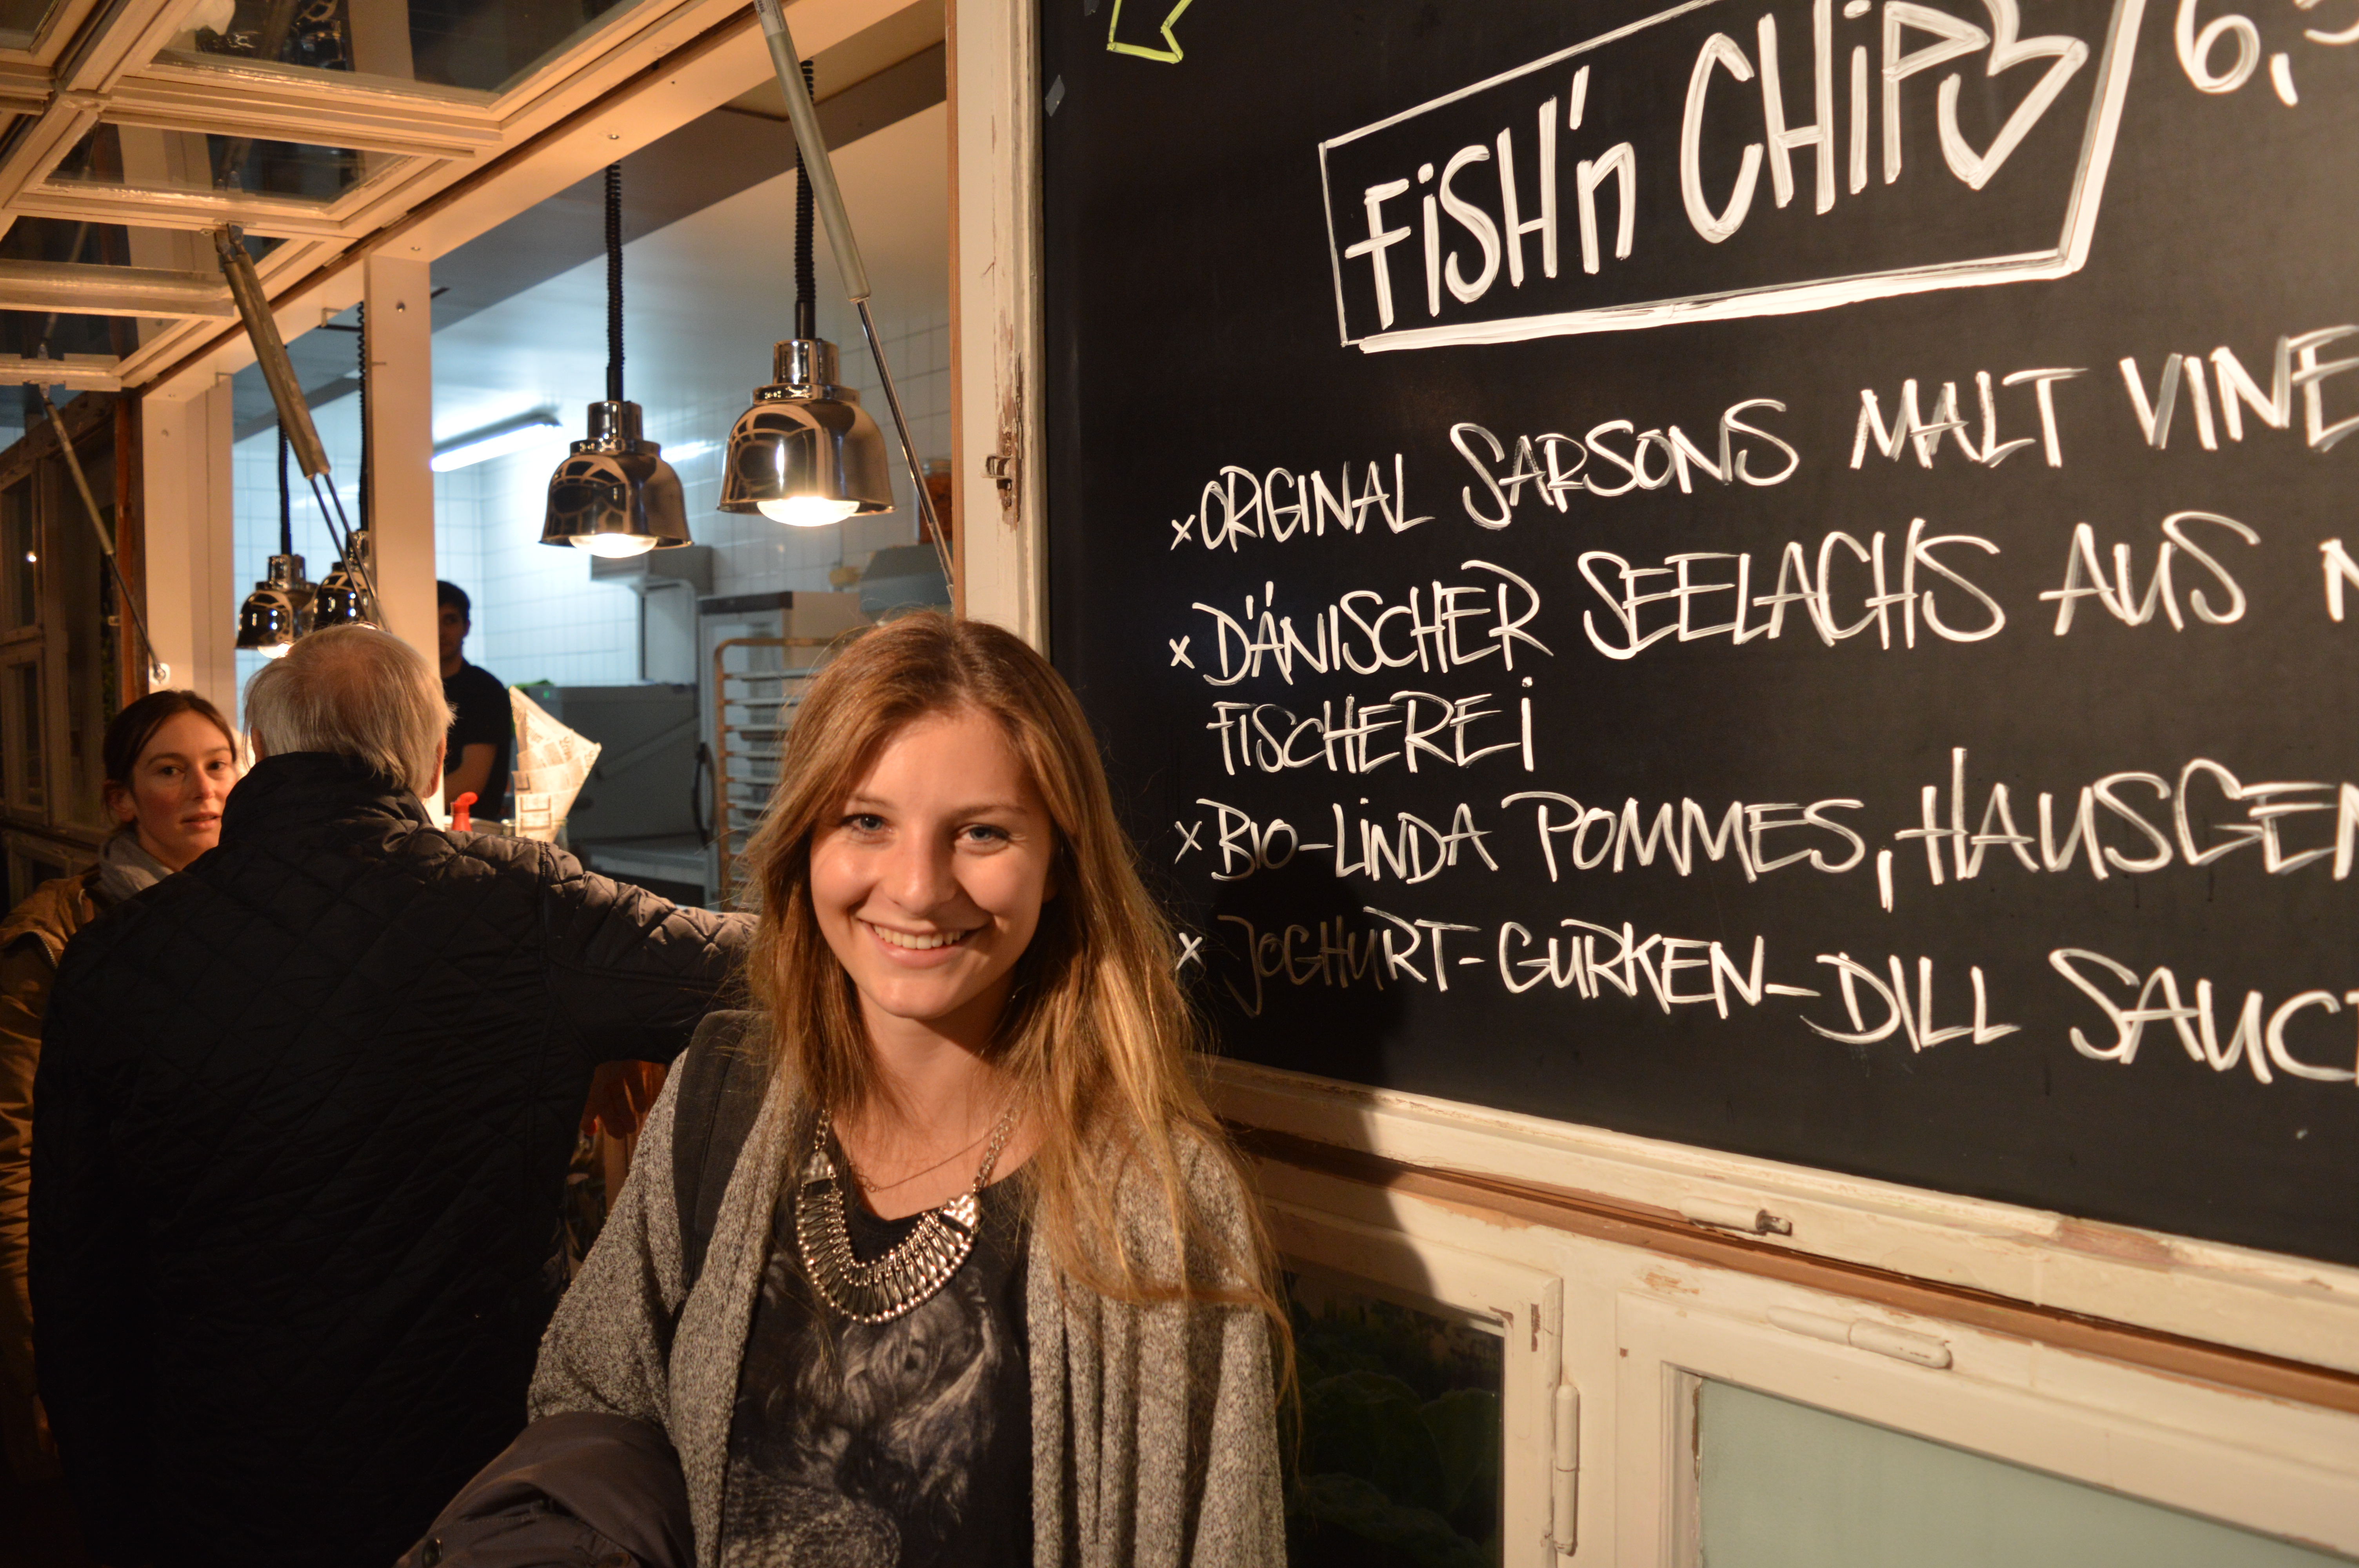 FiSH'n CHiPS 6,
×ORIGINAL SARSONS MALT VINE
×DÄNISCHER SEELACHS AUS
FISCHEREi
×BIO-LiNDA POMMES, HAUSGEM
×JOGHURT-GURKEN-DILL SAUCE